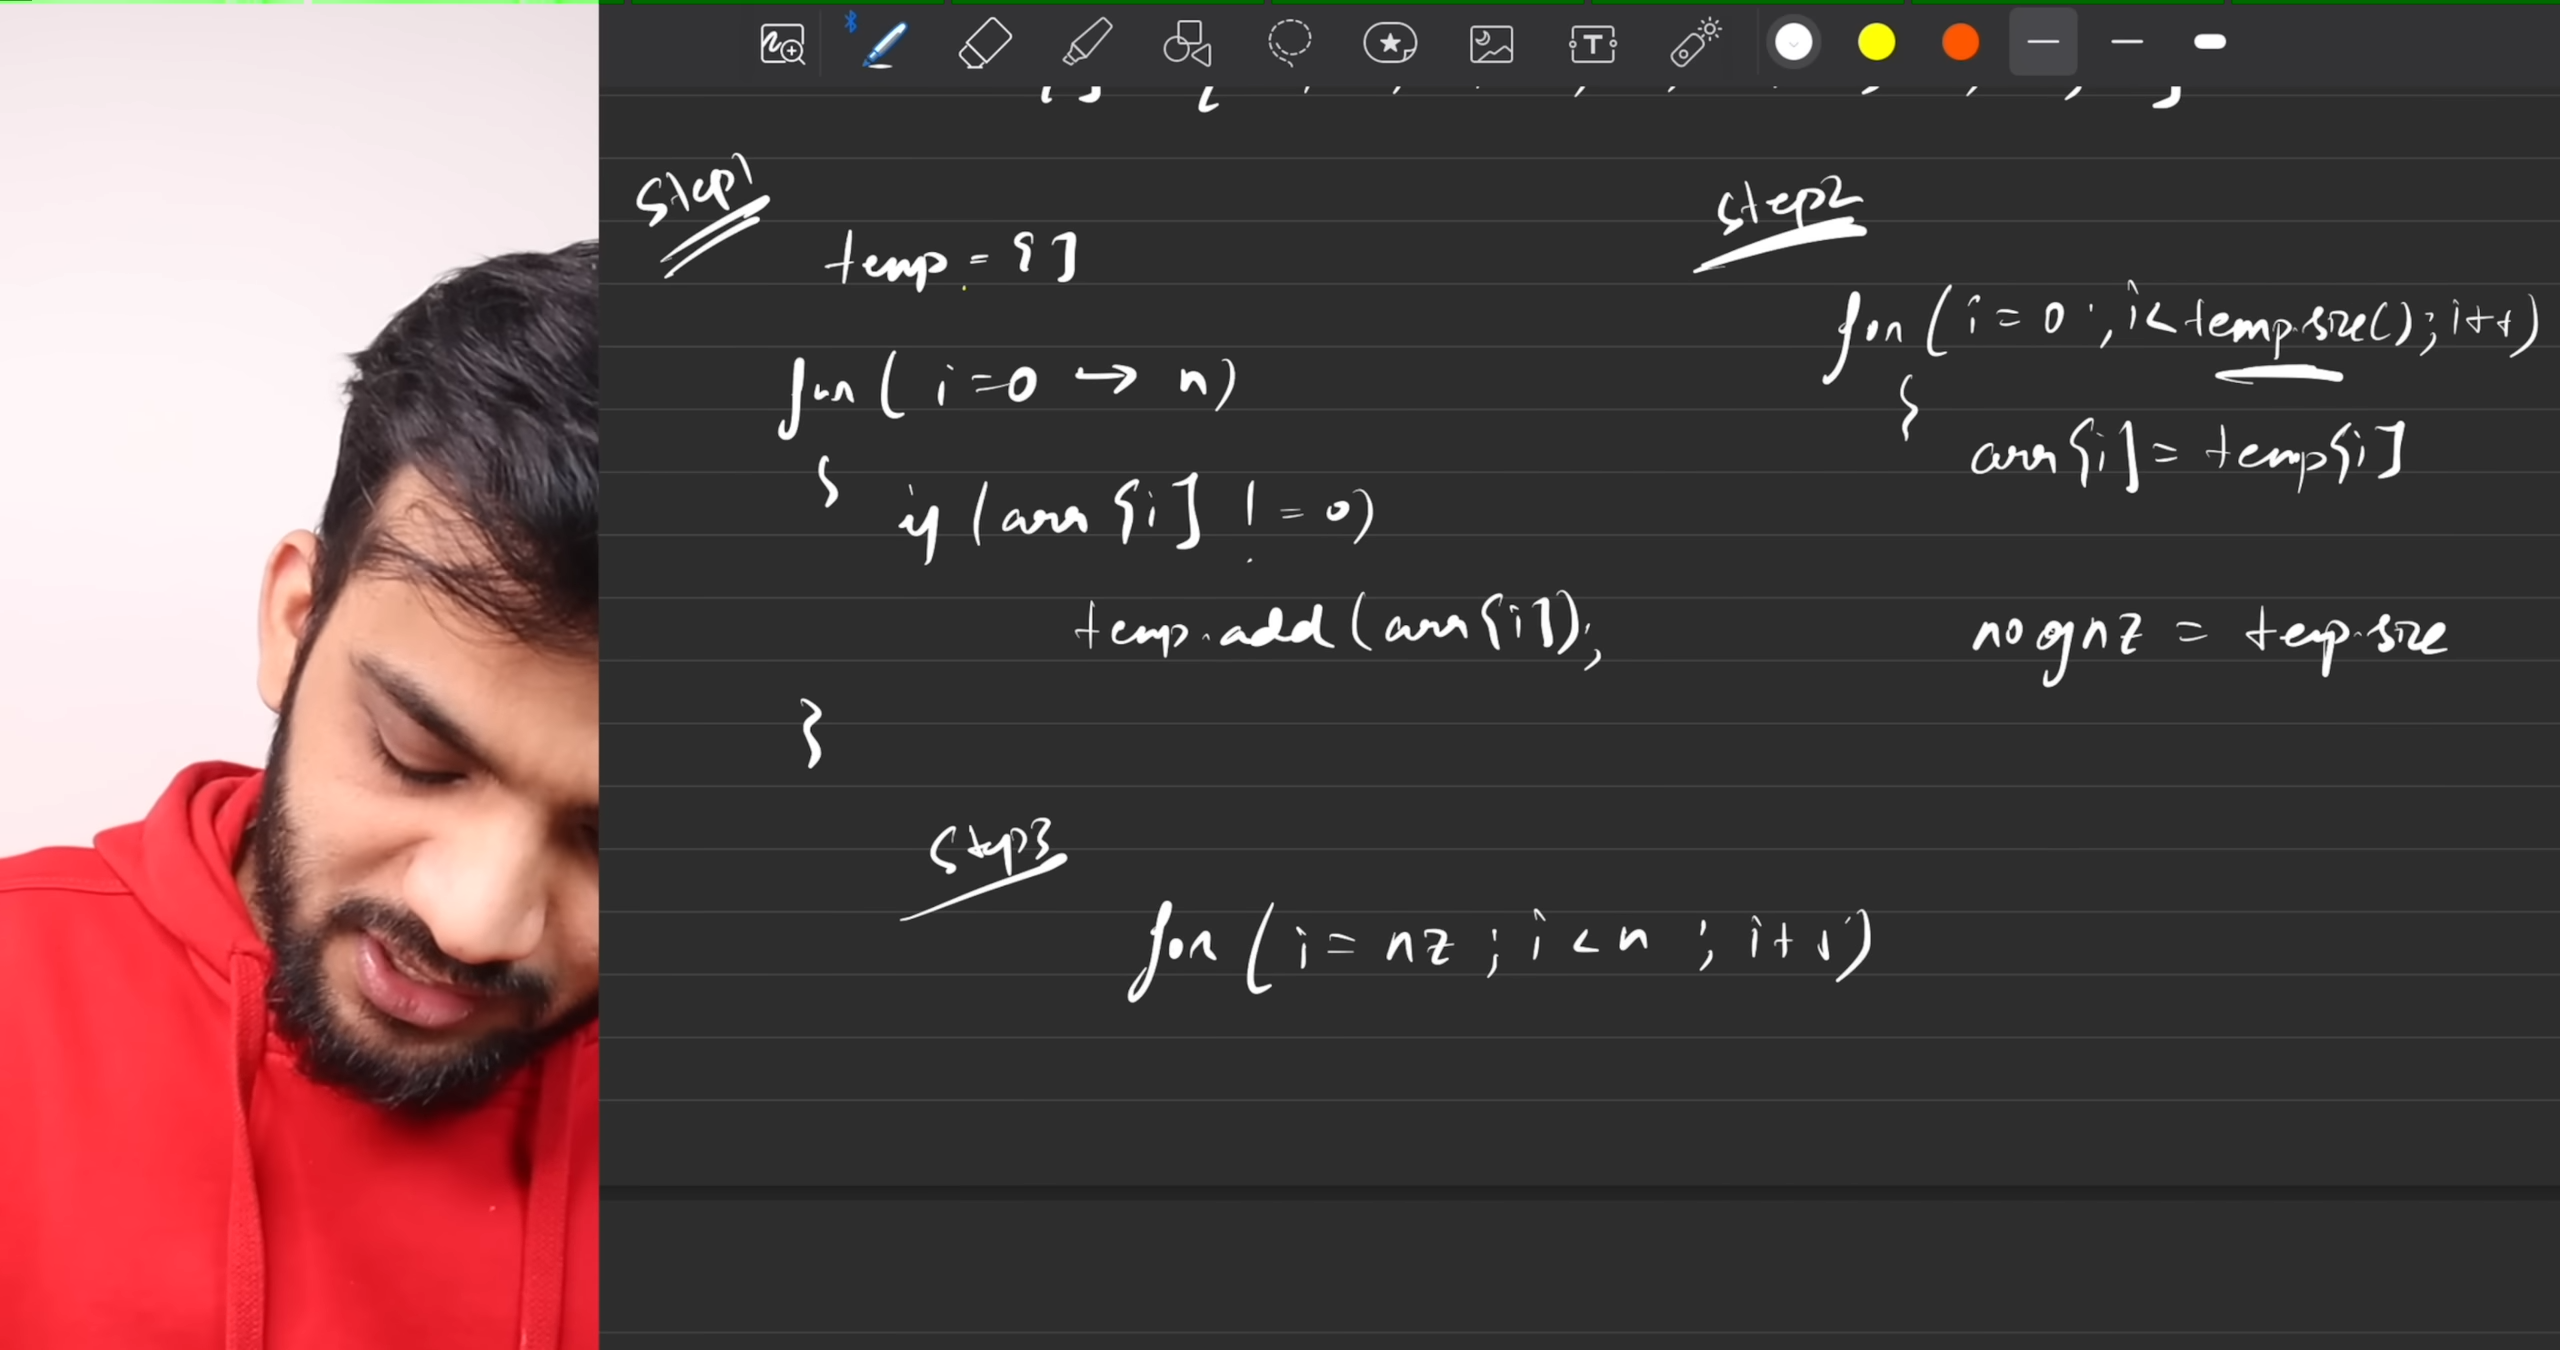 Step1
temp = []
for ( i=0 → n)
{
if (arr[i] != 0)
temp.add(arr[i]);
}
Step2
for ( i = 0 ; i < temp.size() ; i++)
{
arr[i] = temp[i]
no of nz = temp.size
Step3
for ( i = nz ; i < n ; i++)